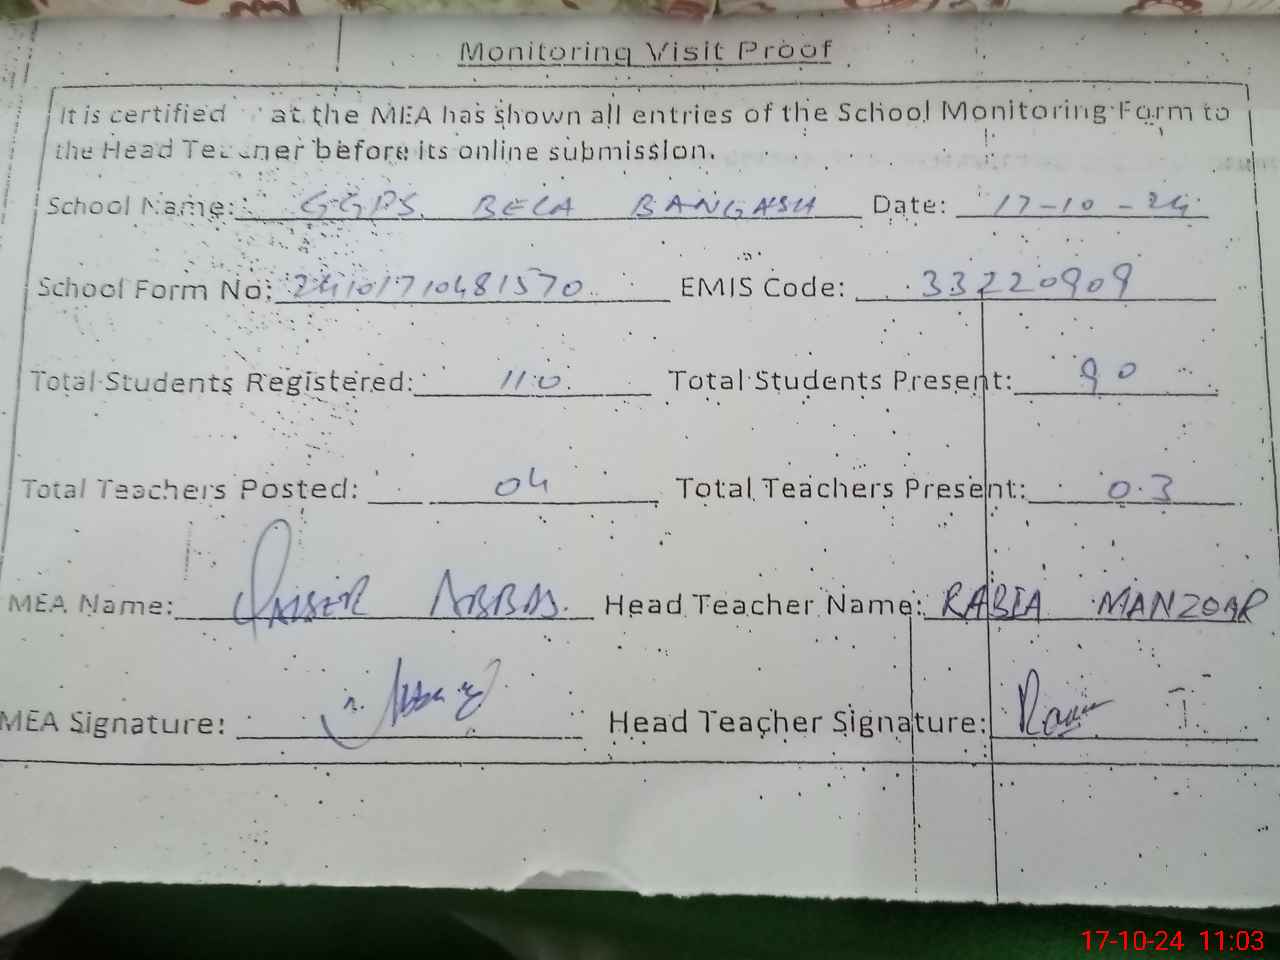 Monitoring Visit Proof
It is certified at the MEA has shown all entries of the School Monitoring Form to
the Head Teacher before its online submission.
School Name: GGPS BELA BANGASH Date: 17-10-24
School Form No: 24101710481570 EMIS Code: 33220909
Total Students Registered: 110 Total Students Present: 90
Total Teachers Posted: 04 Total Teachers Present: 03
MEA Name: QAISER ABBAS. Head Teacher Name: RABIA MANZOOR
MEA Signature: Head Teacher Signature:
17-10-24 11:03